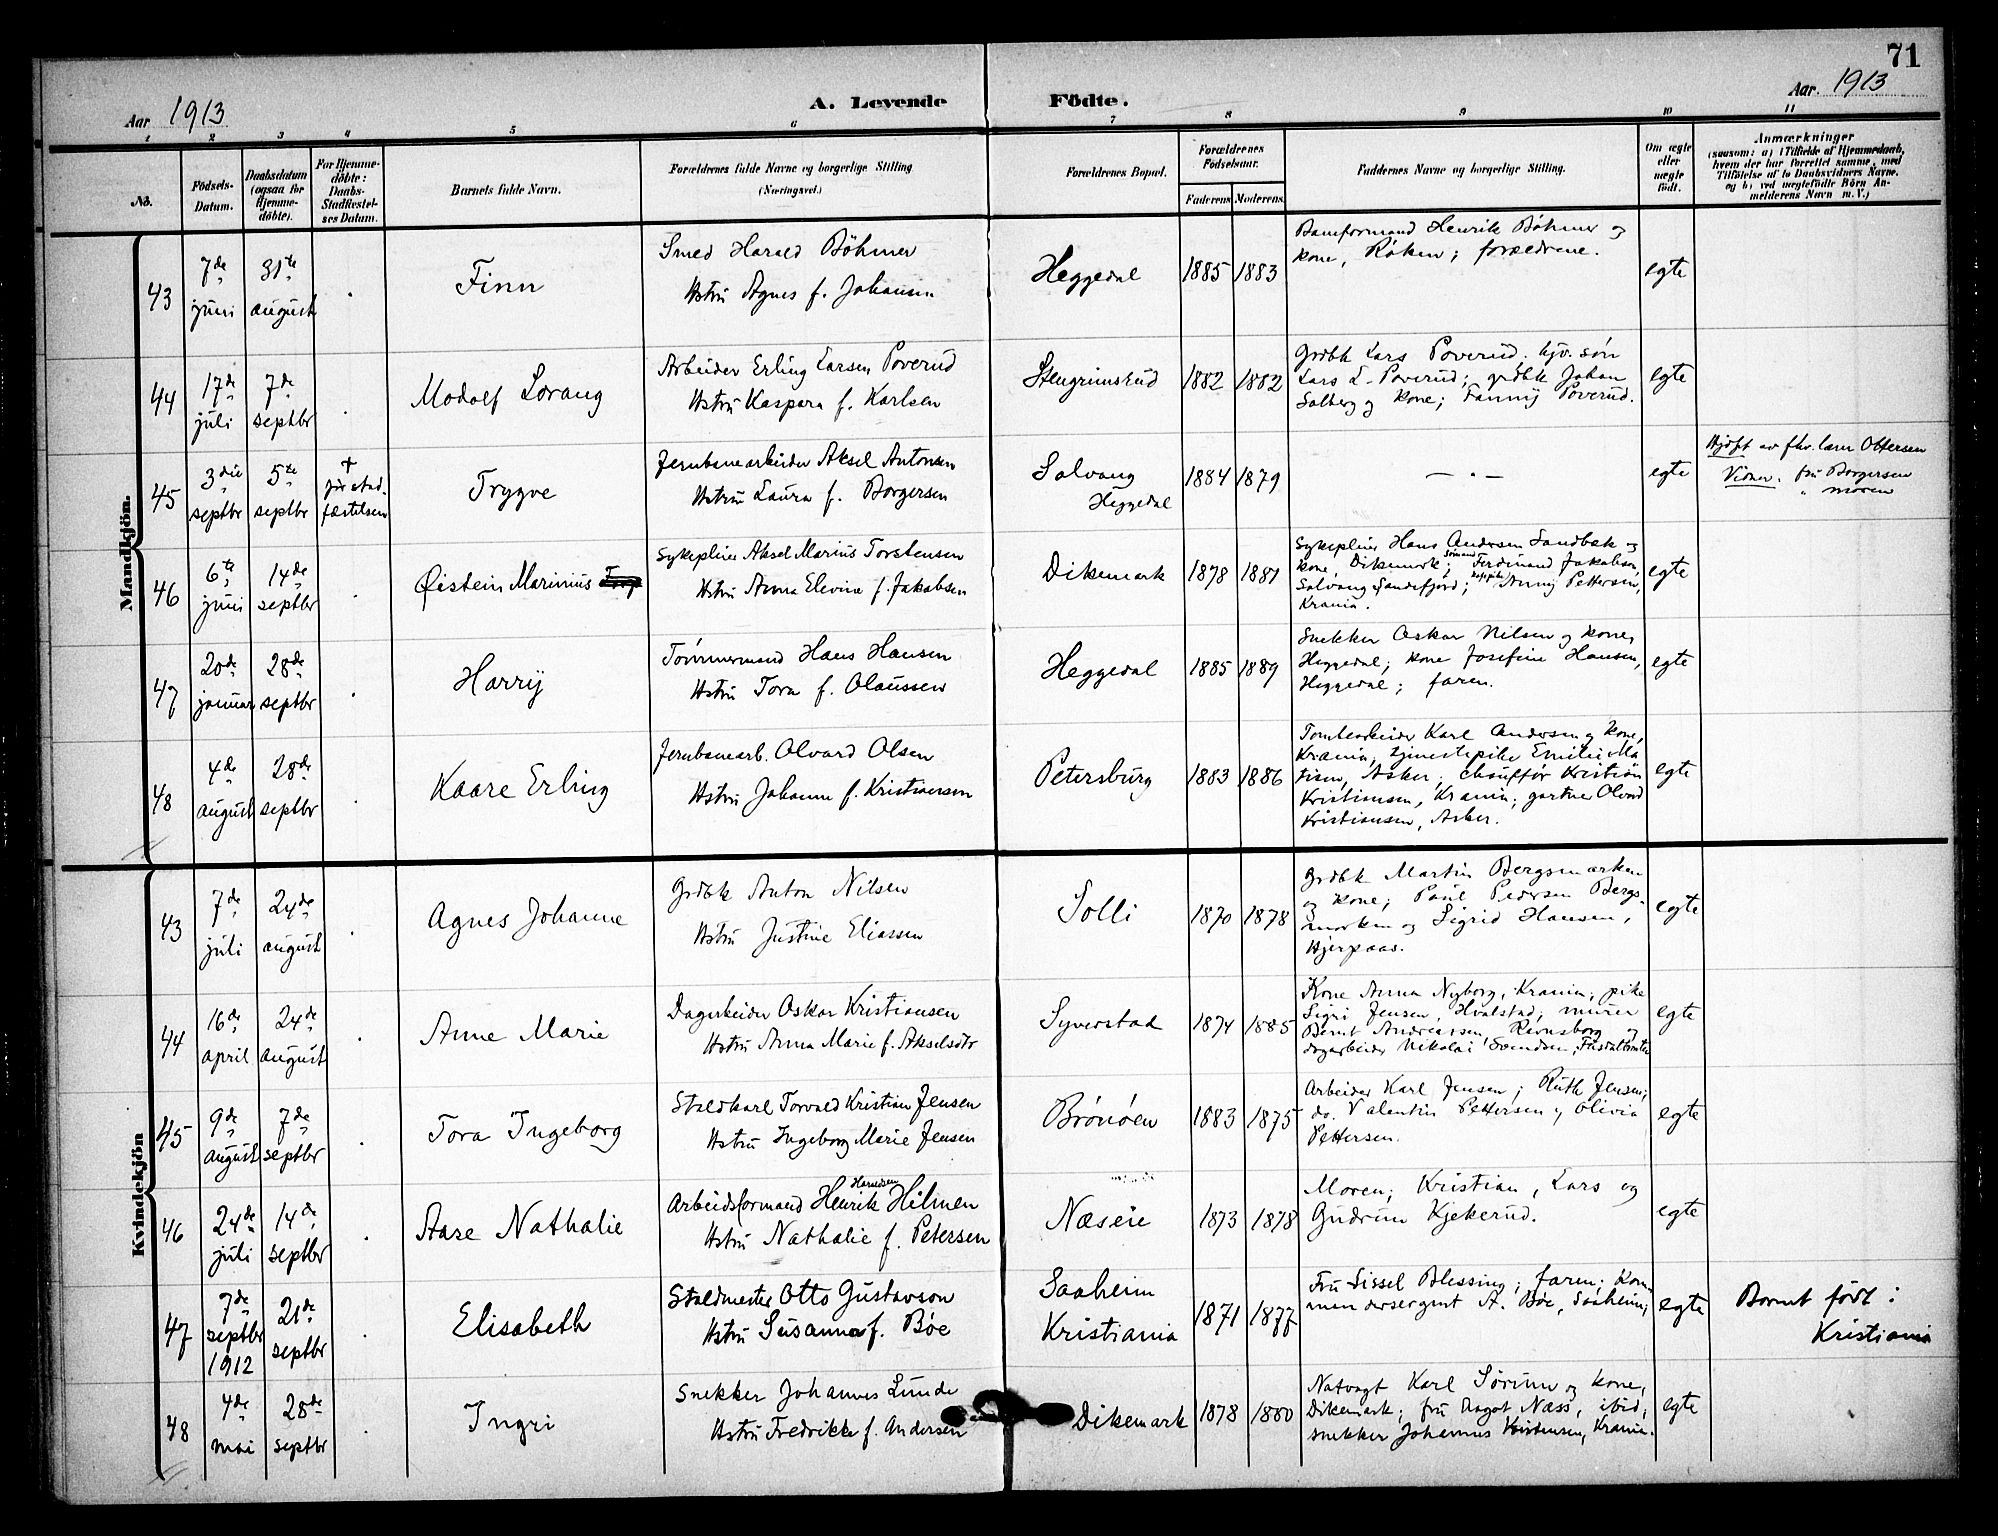 71
Aar 1913
A. Levende Födte.
Aar. 1913
1 2 3 4 5 6 7 8 9 10 11
No.
Födsels-Datum.
Daabsdatum (ogsaa for Hjemme-döbte).
For Hjemme-döbte: Daabs-Stadfæstel-ses Datum.
Barnets fulde Navn.
Forældrenes fulde Navne og borgerlige Stilling (Næringsvei.)
Forældrenes Bopæl.
Forældrenes Födselsaar.
Faderens Moderens
Faddernes Navne og borgerlige Stilling.
Om ægte eller uægte födt.
Anmærkninger
(saasom: a) i Tilfælde af Hjemmedaab,
hvem der har forrettet samme, med
Tilföielse af to Daabsvidners Navne,
og b) ved uægtefödte Börn An-
melderens Navn m. V.)
Mandkjön.
43 7de juni 31te august
Finn
Smed Harald Böhmer
Hstru Agnes f. Johansen
Heggedal 1885 1883
Banformand Henrik Böhmer og
kone, Röken; forældrene.
egte
44 17de juli 7de septbr
Modolf Lorang
Arbeider Erling Larsen Poverud
Hstru Kaspara f. Karlsen
Stengrimsrud 1882 1882
Grdbk Lars Poverud. hjv. søn
Lars L. Poverud; grdbk Johan
Solberg og kone; Fanny Poverud.
egte
45 3die septbr 5te septbr † før stad-fæstelsen
Trygve
Jernbanearbeider Aksel Antonsen
Hstru Laura f. Borgersen
Solvang
Heggedal
1884 1879
— " —
egte
Hjdpt av fhv. lærer Ottersen
Vidner. fru Borgersen
" moren
46 6te juni 14de septbr
Øistein Marinius
Sykepleier Aksel Marius Torstensen
Hstru Anna Elevine f. Jakobsen
Dikemark 1878 1881
Sykepleier Hans Andersen Sandbæk og
kone, Dikemark; sømand Ferdinand Jakobsen,
Solvang Sandefjord; Anny Pettersen,
Krania.
egte
47 20de januar 28de septbr
Harry
Tömmermand Hans Hansen
Hstru Tora f. Olaussen
Heggedal 1885 1889
Snekker Oskar Nilsen og kone,
Heggedal; kone Josefine Hansen,
Heggedal; faren.
egte
48 4de august 28de septbr
Kaare Erling
Jernbanearb. Olvard Olsen
Hstru Johanne f. Kristiansen
Petersburg 1883 1886
Tomtearbeider Karl Andersen og kone,
Krania, tjenestepike Emilie Ma
tisen, Asker; chauffør Kristian
Kristiansen, Krania; gartner Olvard
Kristiansen, Asker.
egte
Kvindekjön
43 7de juli 24de august
Agnes Johanne
Grdbk Anton Nilsen
Hstru Justine Eliassen
Solli 1870 1878
Grdbk Martin Bergsmarken
og kone; Paul Pedersen Bergs-
marken og Sigrid Hansen,
Hjerpaas.
egte
44 16de april 24de august
Anne Marie
Dagarbeider Oskar Kristiansen
Hstru Anna Marie f. Akselsdtr
Syverstad 1874 1885
Kone Anna Nyborg, Krania; pike
Sigri Jensen, Hvalstad; murer
Bernt Andreassen, Ravnsborg og
dagarbeider Nikolai Svendsen,
egte
45 9de august 7de septbr
Tora Ingeborg
Staldkarl Torvald Kristian Jensen
Hstru Ingeborg Marie Jensen
Brönöen 1883 1875
Arbeider Karl Jensen; Ruth Jensen;
do. Valentin Pettersen og Olivia
Pettersen.
egte
46 24de juli 14de septbr
Aase Nathalie
Haraldsen
Arbeidsformand Henrik Hilmen
Hstru Nathalie f. Petersen
Næseie 1873 1878
Moren; Kristian, Lars og
Gudrun Kjekerud.
egte
47 7de septbr 1912 21de septbr
Elisabeth
Staldmester Otto Gustavson
Hstru Susanna f. Bøe
Saaheim
Kristiania
1871 1877
Fru Sissel Blessing; faren; Kom
mandersergent A. Bøe, Saaheim;
egte
Barnet født i
Kristiania
48 4de mai 28de septbr
Ingri
Snekker Johannes Lunde
Hstru Fredrikke f. Andersen
Dikemark 1878 1880
Natvagt Karl Sörum og kone,
Dikemark; fru Aagot Næss, ibid;
snekker Johannes Kristensen, Krania.
egte